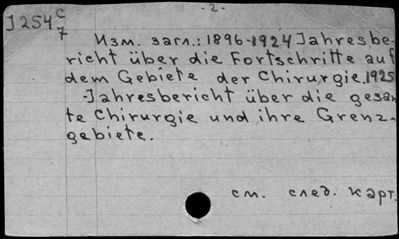 - 2. -
J 254 c/7
Изм. загл.: 1896-1924 Jahresbe-
richt über die Fortschritte auf
dem Gebiete der Chirurgie. 1925
-Jahresbericht über die gesam
te Chirurgie und ihre Grenz-
gebiete.
см. след. карт.